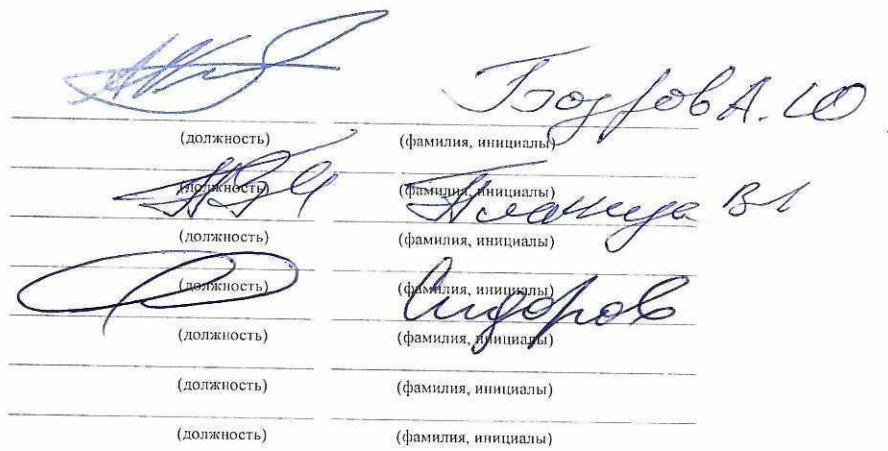 А. Ю
(должность) (фамилия, инициалы)
(должность) (фамилия, инициалы)
(должность) (фамилия, инициалы)
(должность) (фамилия, инициалы)
Сидоров
(должность) (фамилия, инициалы)
(должность) (фамилия, инициалы)
(должность) (фамилия, инициалы)